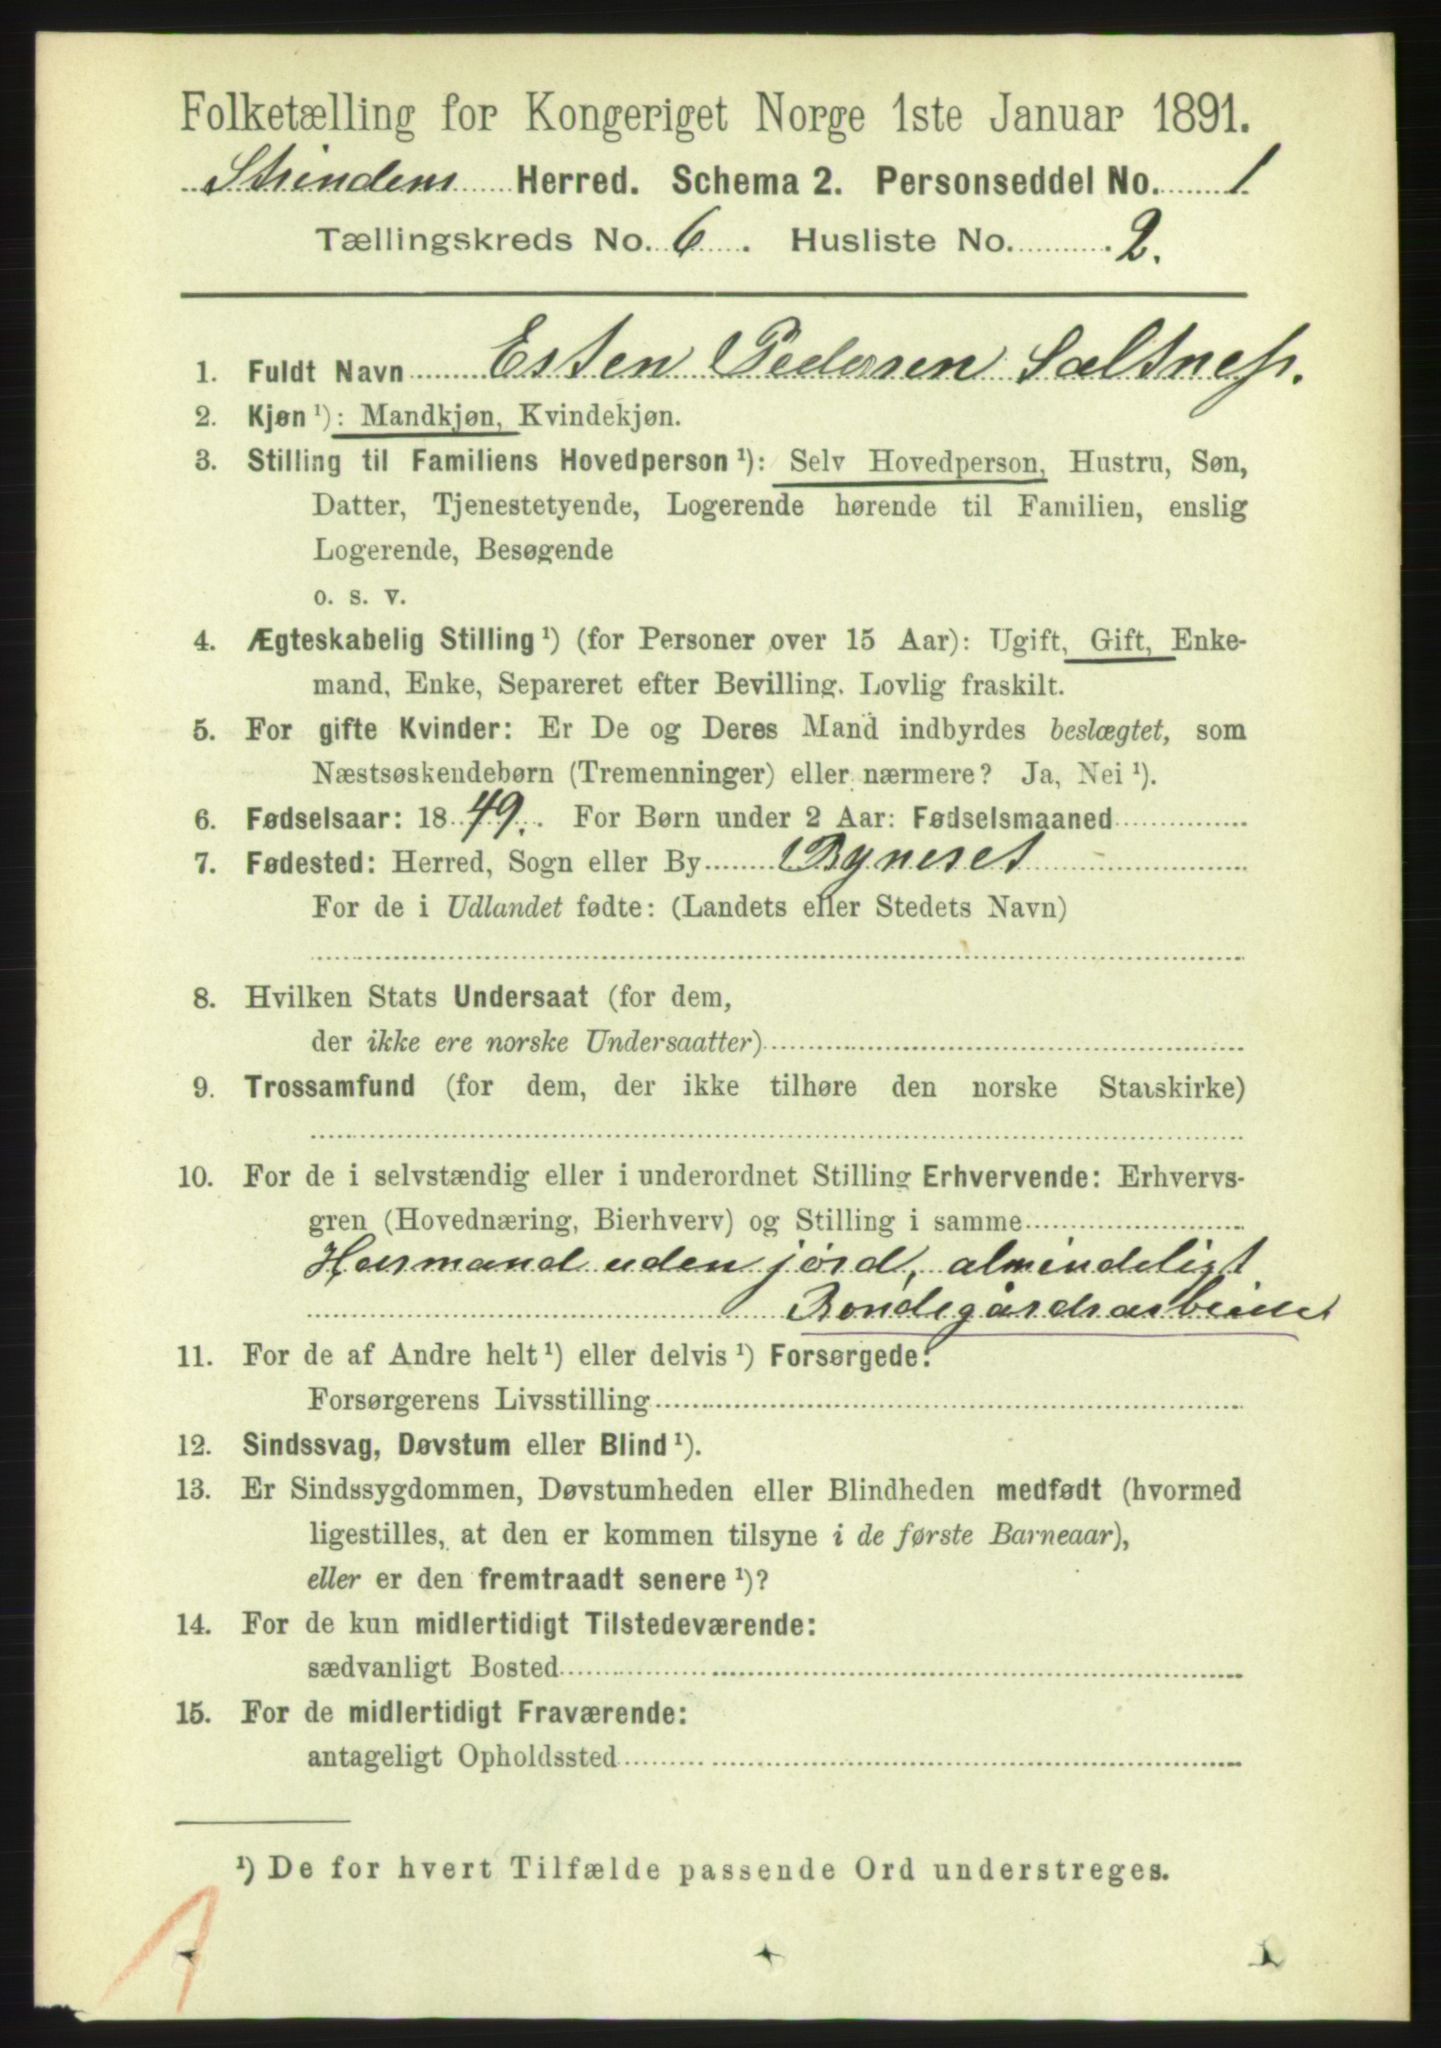 Folketælling for Kongeriget Norge 1ste Januar 1891.
Strindens Herred. Schema 2. Personseddel No. 1.
Tællingskreds No. 6. Husliste No. 2.
1. Fuldt Navn Esten Pedersen Saltness.
2. Kjøn ¹): Mandkjøn, Kvindekjøn.
3. Stilling til Familiens Hovedperson ¹): Selv Hovedperson, Hustru, Søn,
Datter, Tjenestetyende, Logerende hørende til Familien, enslig
Logerende, Besøgende
o. s. v.
4. Ægteskabelig Stilling ¹) (for Personer over 15 Aar): Ugift, Gift, Enke-
mand, Enke, Separeret efter Bevilling. Lovlig fraskilt.
5. For gifte Kvinder: Er De og Deres Mand indbyrdes beslægtet, som
Næstsøskendebørn (Tremenninger) eller nærmere? Ja, Nei ¹).
6. Fødselsaar: 1849. For Børn under 2 Aar: Fødselsmaaned
7. Fødested: Herred, Sogn eller By Byneset
For de i Udlandet fødte: (Landets eller Stedets Navn)
8. Hvilken Stats Undersaat (for dem,
der ikke ere norske Undersaatter)
9. Trossamfund (for dem, der ikke tilhøre den norske Statskirke)
10. For de i selvstændig eller i underordnet Stilling Erhvervende: Erhvervs-
gren (Hovednæring, Bierhverv) og Stilling i samme
Husmand uden jord, almindeligt
Bondegårdsarbeide
11. For de af Andre helt ¹) eller delvis ¹) Forsørgede:
Forsørgerens Livsstilling
12. Sindssvag, Døvstum eller Blind ¹).
13. Er Sindssygdommen, Døvstumheden eller Blindheden medfødt (hvormed
ligestilles, at den er kommen tilsyne i de første Barneaar),
eller er den fremtraadt senere ¹)?
14. For de kun midlertidigt Tilstedeværende:
sædvanligt Bosted
15. For de midlertidigt Fraværende:
antageligt Opholdssted
¹) De for hvert Tilfælde passende Ord understreges.